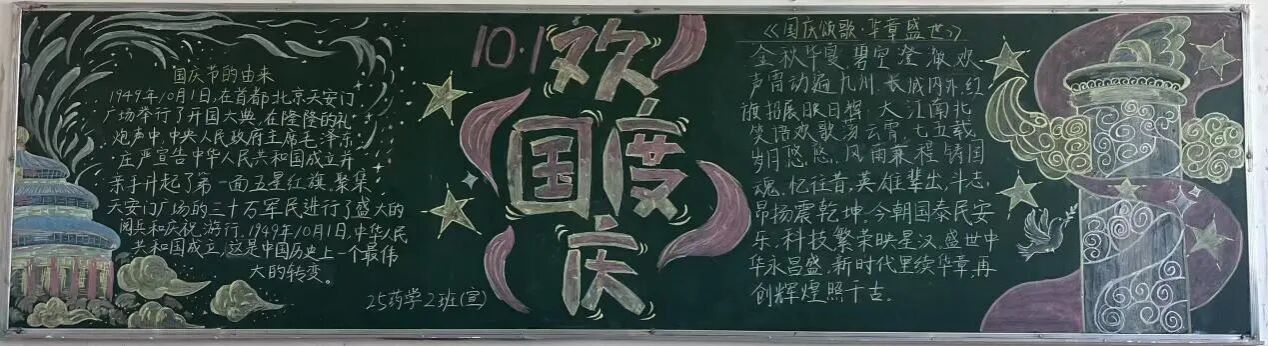 国庆节的由来
1949年10月1日,在首都北京天安门
广场举行了开国大典,在隆隆的礼
炮声中,中央人民政府主席毛泽东
庄严宣告中华人民共和国成立并
亲手升起了第一面五星红旗。聚集
天安门广场的三十万军民进行了盛大的
阅兵和庆祝游行。1949年10月1日,中华人民
共和国成立,这是中国历史上一个最伟
大的转变。
25药学2班(宣)
10·1
欢
度
国
庆
《国庆颂歌·华章盛世》
金秋华夏碧空澄澈,欢
声雷动遍九州.长城内外,红
旗招展映日辉;大江南北
笑语欢歌荡云霄.七五载
岁月悠悠,风雨兼程铸国
魂,忆往昔,英雄辈出,斗志
昂扬震乾坤.今朝国泰民安
乐,科技繁荣映星汉.盛世中
华永昌盛,新时代里续华章,再
创辉煌照千古.